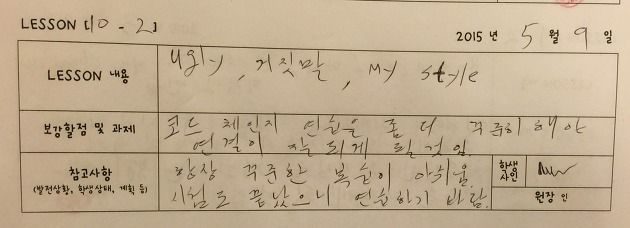 LESSON [10 - 2] 2015 년 5 월 9 일
LESSON 내용 Ugly, 거짓말, My style
보강할점 및 과제 코드 체인지 연습을 좀 더 꾸준히 해야
연결이 잘 되게 될 것임
참고사항 항상 꾸준한 복습이 아쉬움. 학생 사인
(발전상황, 학생상태, 계획 등) 시험도 끝났으니 연습하기 바람. 원장 인